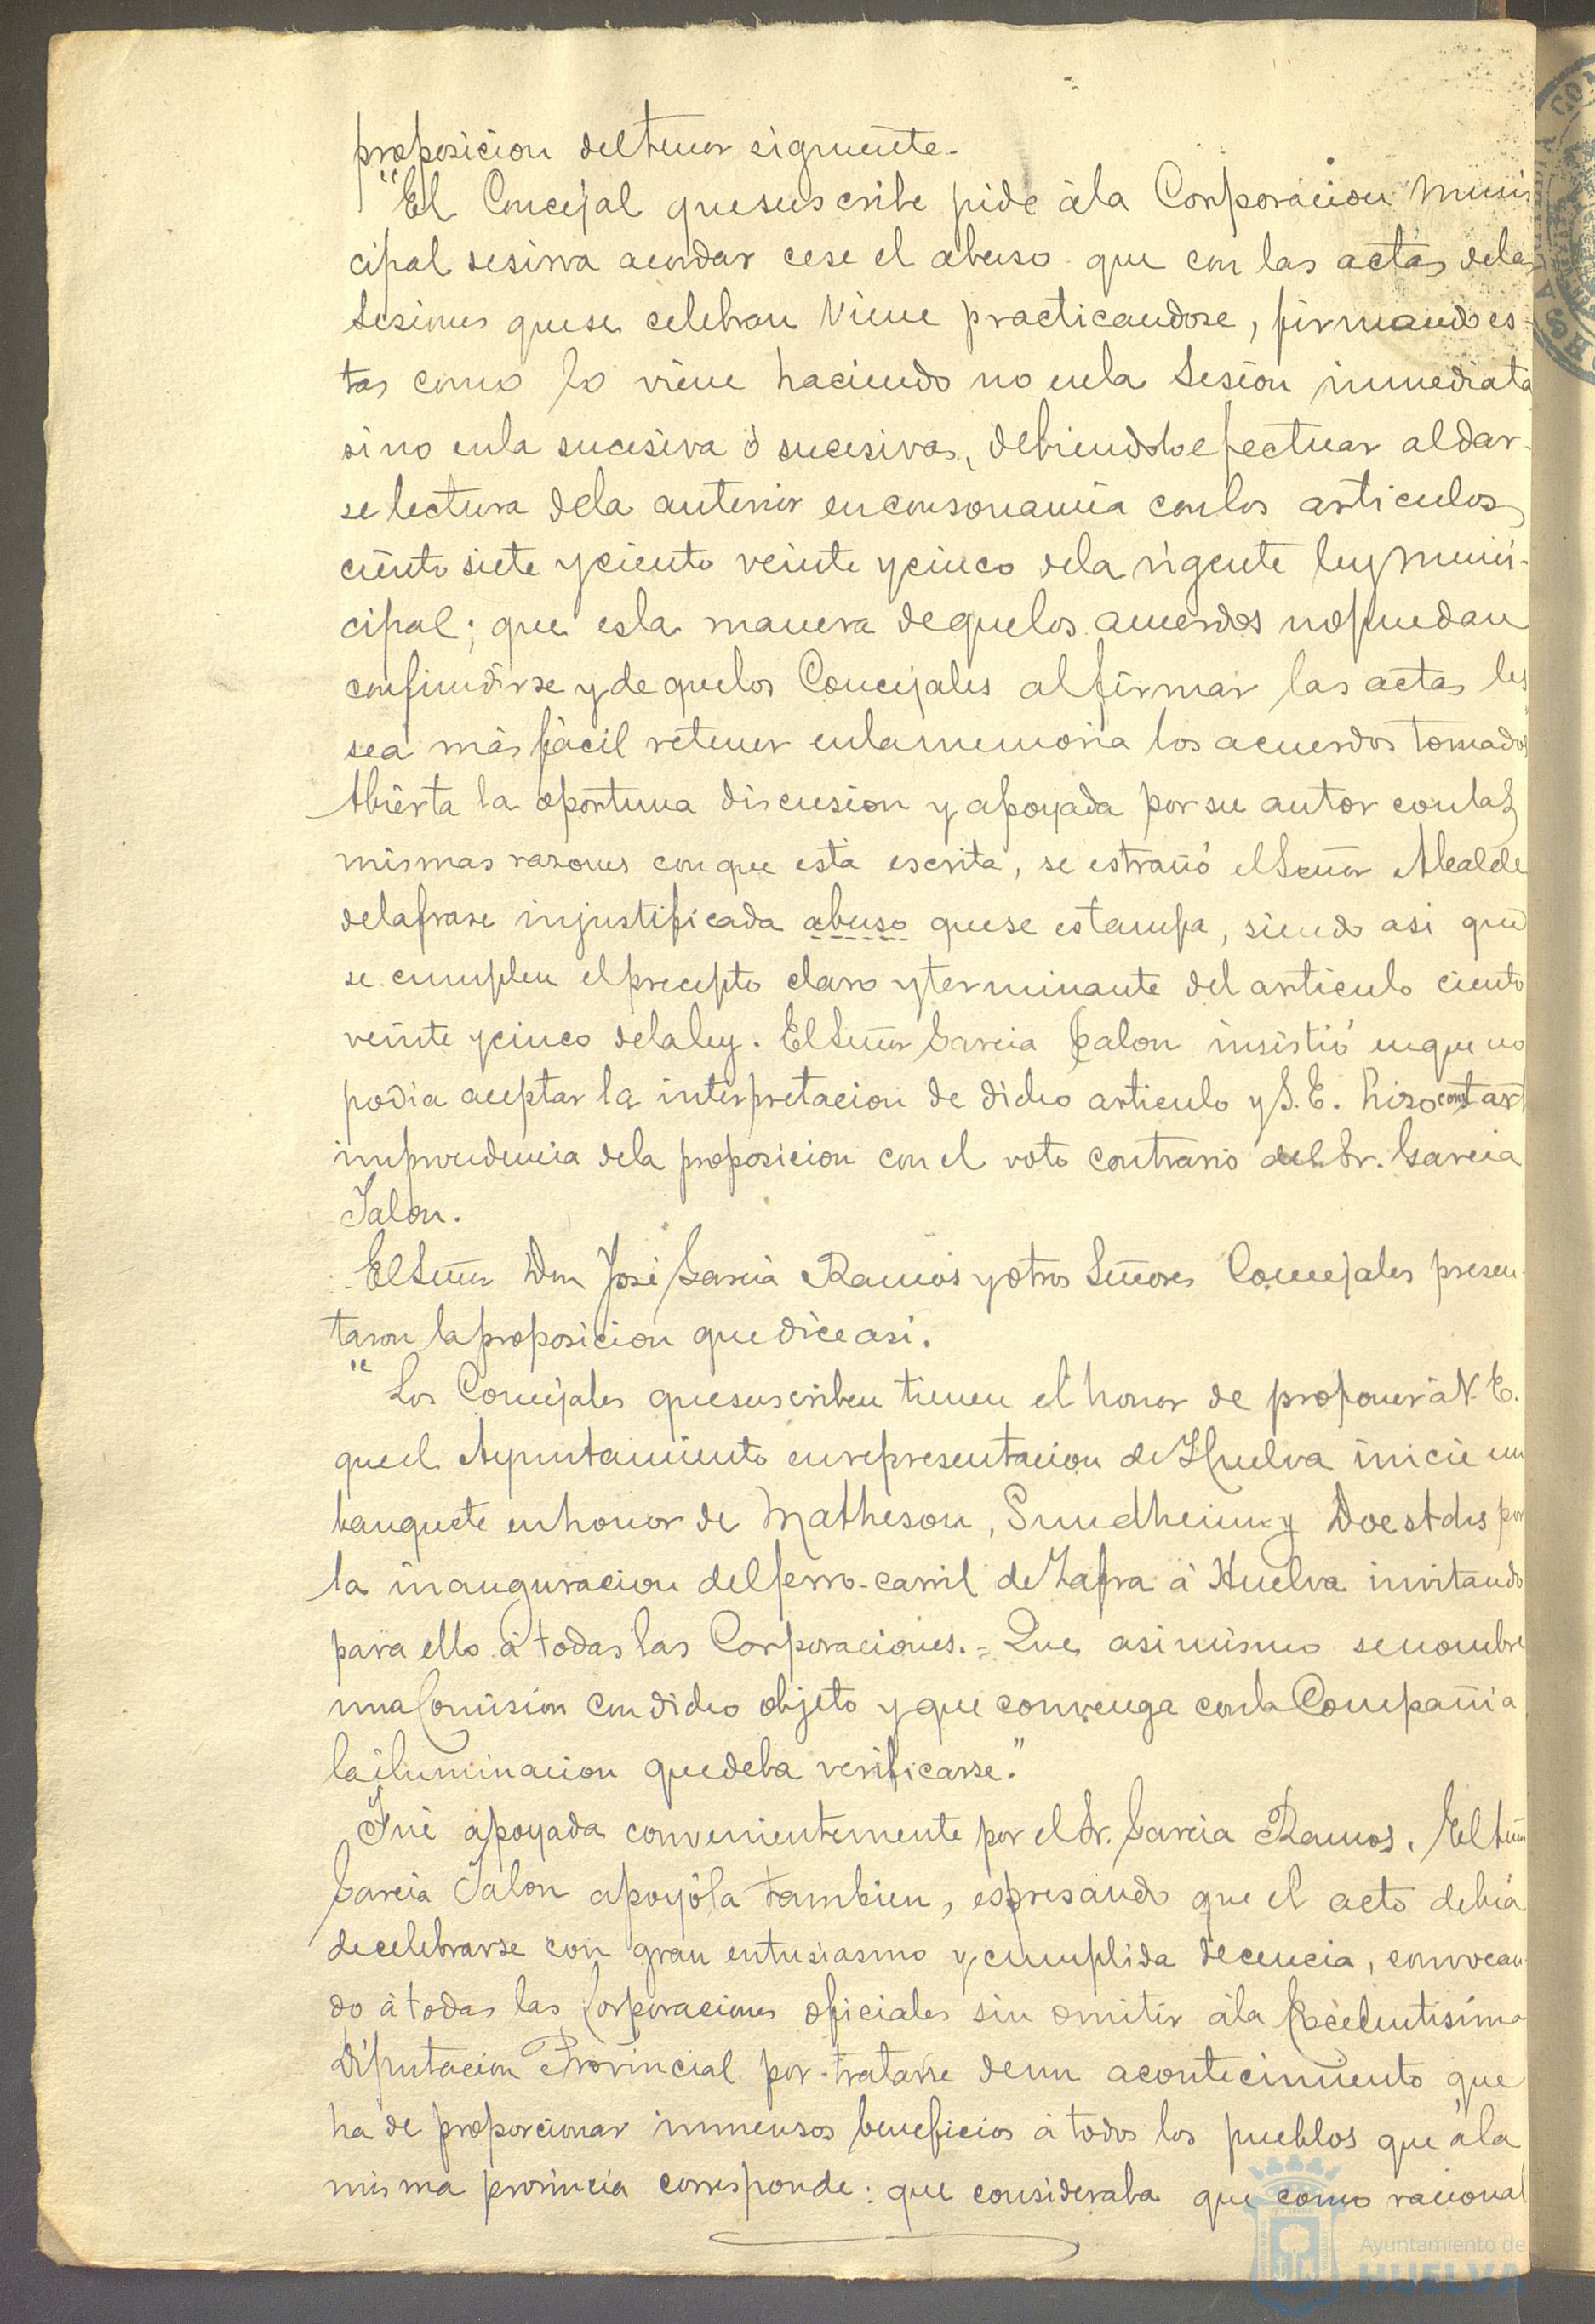 proposicion del tenor siguiente.
"El Concejal que suscribe pide á la Corporacion Muni-
cipal se sirva acordar cese el abuso que con las actas de las
Sesiones que se celebran viene practicandose, firmando es-
tas como lo viene haciendo no en la Sesion inmediata
sino en la sucesiva ó sucesivas, debiendolo efectuar al dar-
se lectura de la anterior en consonancia con los articulos
ciento siete y ciento veinte y cinco de la vigente ley Muni-
cipal; que es la manera de que los acuerdos no puedan
confundirse y de que los Concejales al firmar las actas les
sea más fácil retener en la memoria los acuerdos tomados
Abierta la oportuna discusion y apoyada por su autor con las
mismas razones con que está escrita, se estrañó el Señor Alcalde
de la frase injustificada abuso que se estampa, siendo asi que
se cumplen el precepto claro y terminante del articulo ciento
veinte y cinco de la ley. El Señor Garcia Jalon insistió en que no
podia aceptar la interpretacion de dicho articulo y S. E. hizo constar
improcedencia de la proposicion con el voto contrario del Sr. Garcia
Jalon.
El Señor Don José Garcia Ramos y otros Señores Concejales presen-
taron la proposicion que dice asi.
"Los Concejales que suscriben tienen el honor de proponer á V. E.
que el Ayuntamiento en representacion de Huelva inicie un
banquete en honor de Matheson, Sundheim y Doestch por
la inauguracion del ferro-carril de Zafra á Huelva invitando
para ello á todas las Corporaciones. = Que asimismo se nombre
una Comision con dicho objeto y que convenga con la Compañia
la iluminacion que deba verificarse."
Fué apoyada convenientemente por el Sr. Garcia Ramos. El Señor
Garcia Jalon apoyóla tambien, espresando que el acto debia
de celebrarse con gran entusiasmo y cumplida decencia, convocan-
do á todas las Corporaciones oficiales sin omitir á la Excelentisima
Diputacion Provincial por tratarse de un acontecimiento que
ha de proporcionar inmensos beneficios á todos los pueblos que á la
misma provincia corresponde: que consideraba que como racional
Ayuntamiento de
HUELVA